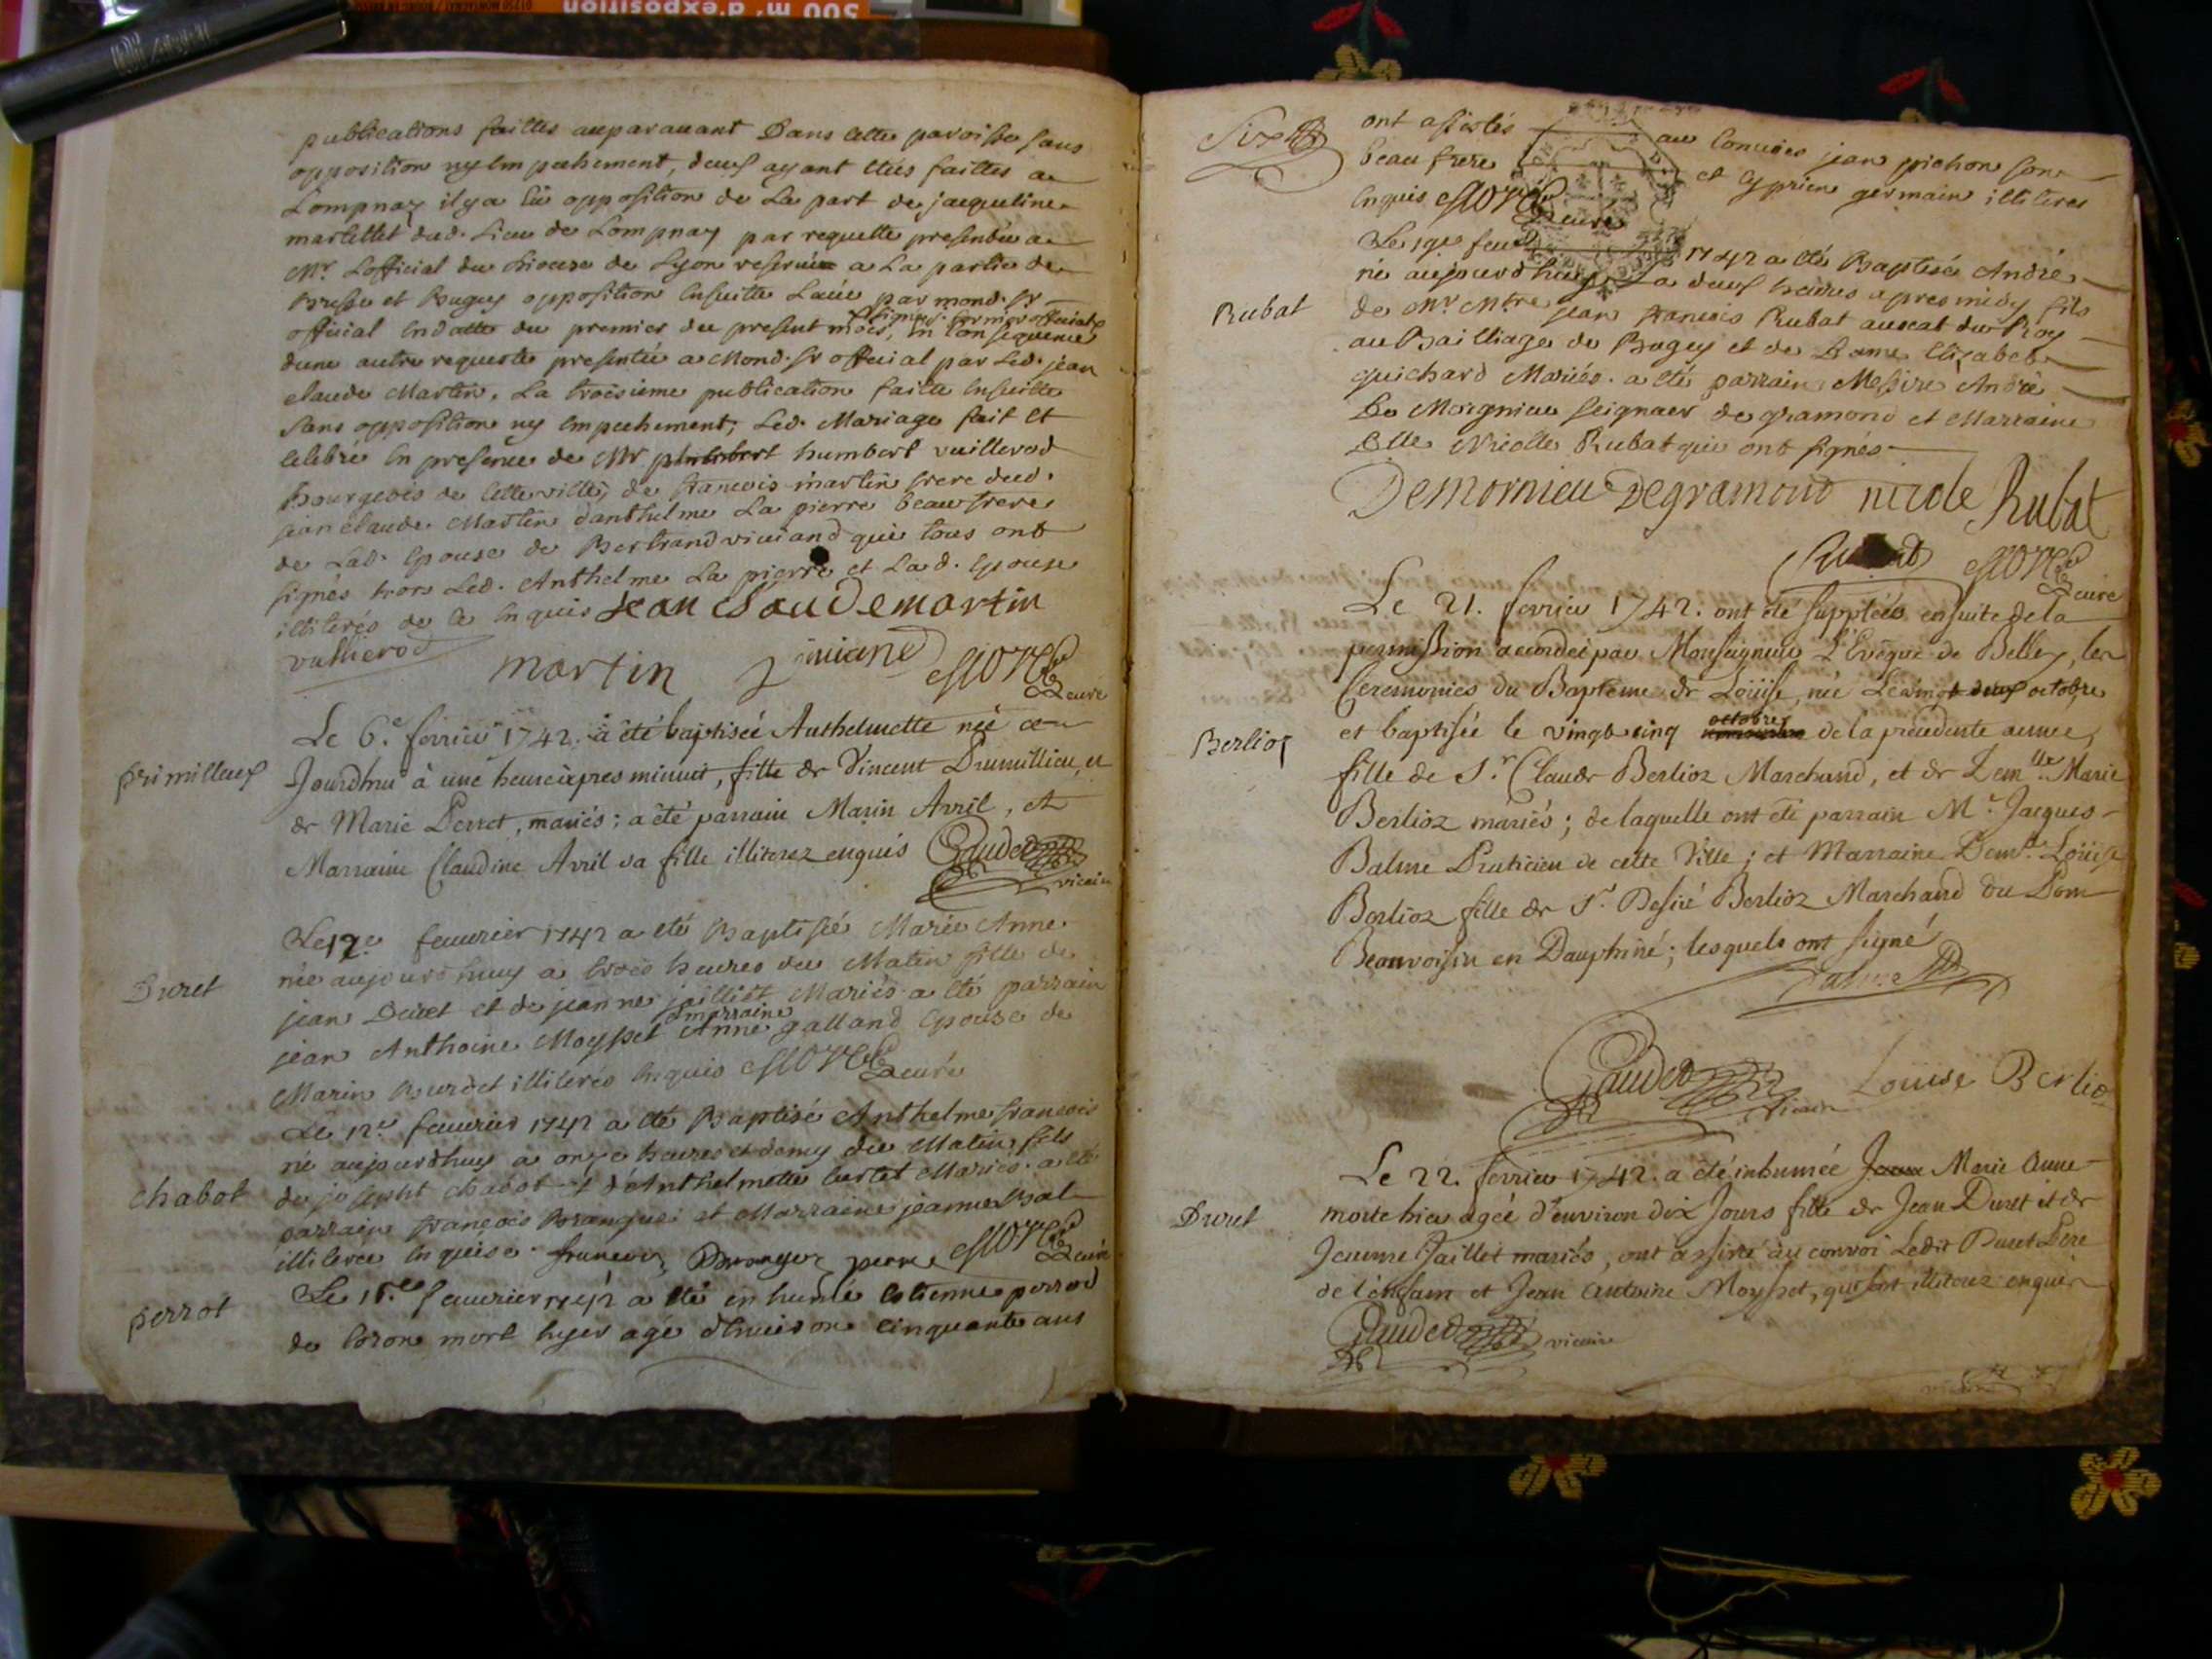 publications faittes auparauant Dans cette paroisse sans
opposition ny Empechement, deux ayant étés faittes a
Lompnay il y a Eü opposition de La part de jacqueline
martellet dud. Lieu de Lompnay par requette presentée a
Mr Lofficial du Diocese de Lyon reservée a La partie de
Bresse et Bugey opposition Ensuitte Levée par mond. sr
official En datte du premier du present mois, En Consequence
dune autre requeste presentée a Mond. sr official par Led. jean
claude Martin, La troisieme publication faitte Ensuitte
sans opposition ny Empechement; Led. Mariage fait Et
Celebré En presence de Mr humbert vuillerod
Bourgeois de Cette ville, de françois martin frere dud.
jean claude Martin danthelme La pierre beaufrere
de Lad. Epouse de Bertrand viuiand qui tous ont
signés hors Led. Anthelme La pierre et La d. Epouse
illiterés de ce Enquis jean Claude martin
vullierod
martin
Curé
primillieux
Le 6.e fevrier 1742. a été baptiseé Anthelmette neé au
Jourdhui à une heure apres minuit, fille de Vincent Drumillieu, et
de Marie Perret, mariés; a été parrain Marin Avril, et
Marraine Claudine Avril sa fille illiterez enquis Gaudet
vicaire
Duret
Le 12.e feuurier 1742 a eté Baptisée Marie Anne
née aujourdhuy a trois heures du Matin fille de
jean Duret et de jeanne jaillet Mariés. a eté parrain
marraine
jean Anthoine Moysset Anne galland Epouse de
Marin Burdet illiterés Enquis
Curé
chabot
Le 12.e feuurier 1742 a eté Baptisé Anthelme francois
né aujourdhuy a onze heures et demy du Matin, fils
de joseph chabot et d'Anthelmette Mariés. a eté
parrain françois et Marraine jeanne
illiterée Enquise. francois
Curé
perrot
Le feuurier 1742 a eté enhumé Estienne perrod
de Coron mort hyer agé d'Enuiron Cinquante ans
ont assistés au Conuoies jean pichon son
beau frere et Cyprien germain illiteres
Enquis
Curé
Rubat
Le 19e feu 1742 a eté Baptisé André
né aujourdhuy a deux heures apres midy fils
de Mr Mtre jean francois Rubat auocat du Roy
au Bailliage de Bugey et de Dame Elizabet
guichard Mariés. a eté parrain Messire André
De Morgnieu seigneur de gramond et Marraine
Dlle Nicolle Rubat qui ont signés
Demornieu Degramond nicole Rubat
Rubat
Curé
Berlioz
Le 21. fevrier 1742. ont été suppleés ensuite de la
permission accordeé par Monseigneur L'Evêque de Belley, les
Ceremonies du Baptême de Loüise, neé Le vingt deux octobre
octobre
et baptisée le vingt cinq novembre de la precedente année,
fille de S.r Claude Berlioz Marchand, et de Demlle Marie
Berlioz mariés; de laquelle ont été parrain M.r Jacques
Balme Praticien de cette Ville; et Marraine Demlle Loüise
Berlioz fille de S.r Desiré Berlioz Marchand du Pont
Beauvoisin en Dauphiné; lesquels ont signé
Balme
Gaudet
vicaire
Loüise Berlio
Duret
Le 22. fevrier 1742. a été inhumeé Jeanne Marie Anne
morte hier ageé d'environ dix Jours fille de Jean Duret et de
Jeanne Jaillet mariés, ont assisté au convoi Ledit Duret Pere
de l'enfant et Jean Antoine Moysset, qui sont illiterez enquis
Gaudet vicaire